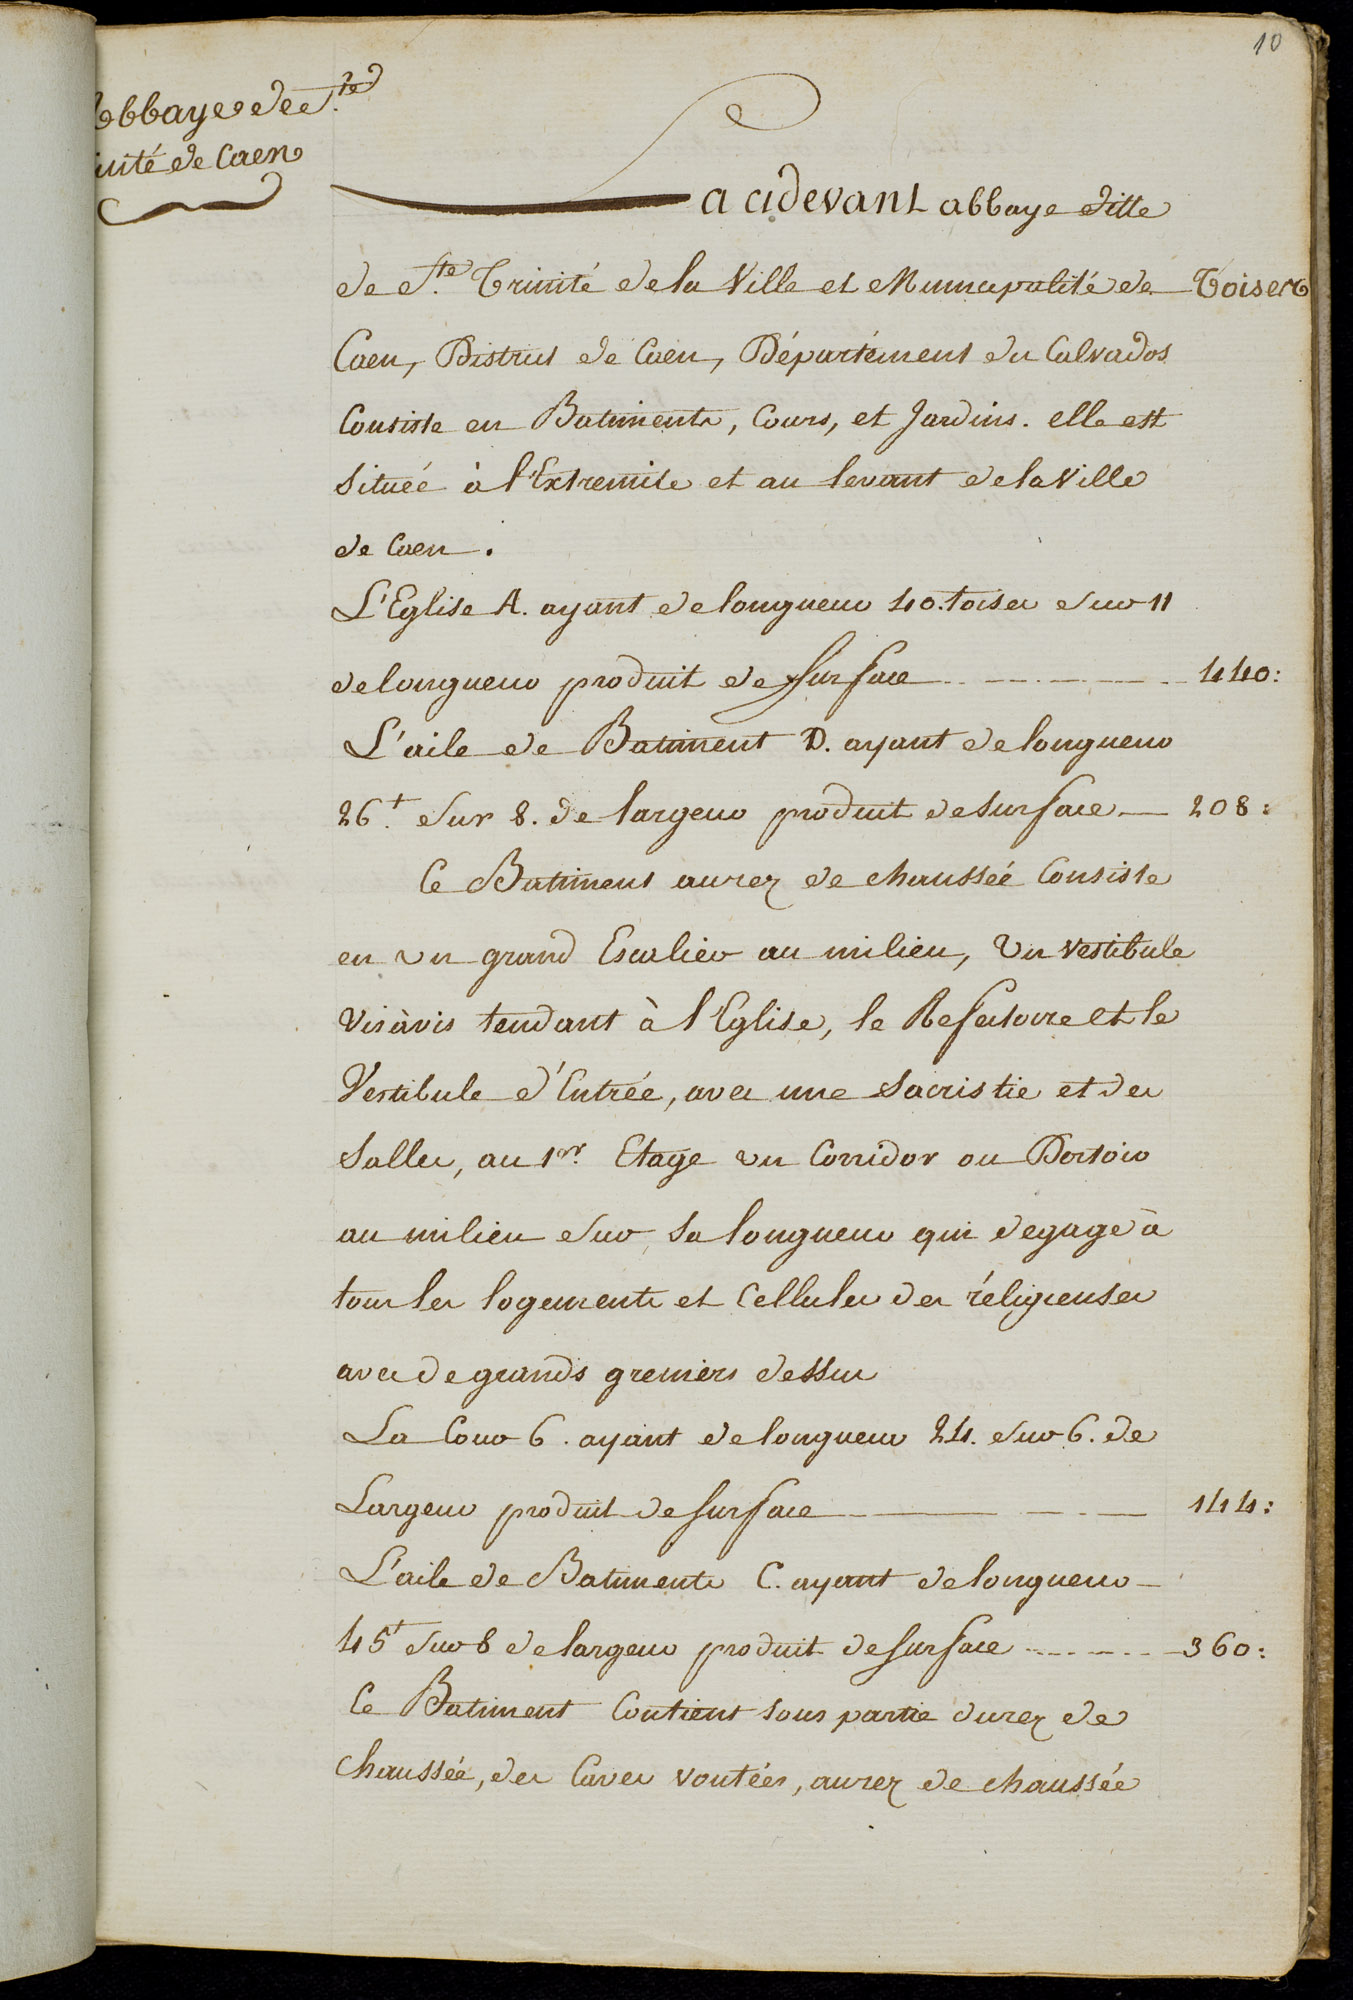 10
abbaye de S.te
inité de Caen
La cidevant abbaye ditte
de S.te Trinité de la Ville et Municipalité de Toises
Caen, District de Caen, Département du Calvados
Consiste en Batiments, Cours, et Jardins. elle est
Située à l'Extremité et au levant de la Ville
de Caen.
L'Eglise A. ayant de longueur 40. toises sur 11
de longueur produit de surface 440:
L'aile de Batiment D. ayant de longueur
26.t sur 8. de largeur produit de surface 208:
Ce Batiment au rez de chaussée Consiste
en un grand Escalier au milieu, Un vestibule
Vis à vis tendant à l'Eglise, le Refectoire et le
Vestibule d'Entrée, avec une Sacristie et des
Salles, au 1.er Etage un Corridor ou Dortoir
au milieu sur sa longueur qui degage à
tous les logements et Cellules des réligieuses
avec de grands greniers dessus
La Cour 6. ayant de longueur 24. sur 6. de
Largeur produit de surface 144:
L'aile de Batiments C. ayant de longueur
45t sur 8 de largeur produit de surface 360:
Ce Batiment Contient sous partie du rez de
Chaussée, des Caves voutées, au rez de chaussée